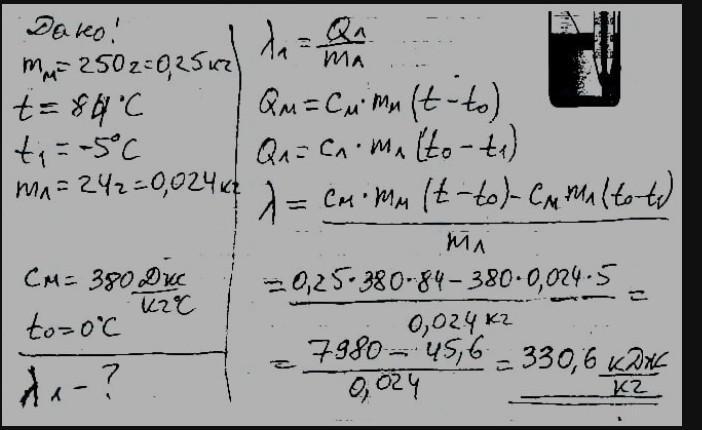 Дано!
mм = 250г = 0,25кг
t = 84°C
t₁ = -5°C
mл = 24г = 0,024кг
cм = 380 Дж/кг°C
t₀ = 0°C
λл - ?
λл = Qл/mл
Qм = cм · mм (t - t₀)
Qл = cл · mл (t₀ - t₁)
λ = (cм · mм (t - t₀) - cм · mл (t₀ - t₁))/mл
= (0,25 · 380 · 84 - 380 · 0,024 · 5)/0,024 кг =
= (7980 - 45,6)/0,024 = 330,6 кДж/кг